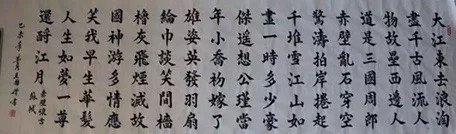 大江東去浪淘
盡千古風流人
物故壘西邊人
道是三國周郎
赤壁亂石穿空
驚濤拍岸捲起
千堆雪江山如
畫一時多少豪
傑遙想公瑾當
年小喬初嫁了
雄姿英發羽扇
綸巾談笑間檣
櫓灰飛煙滅故
國神游多情應
笑我早生華髮
人生如夢一尊
還酹江月
赤壁懷古
蘇軾
乙未年
書